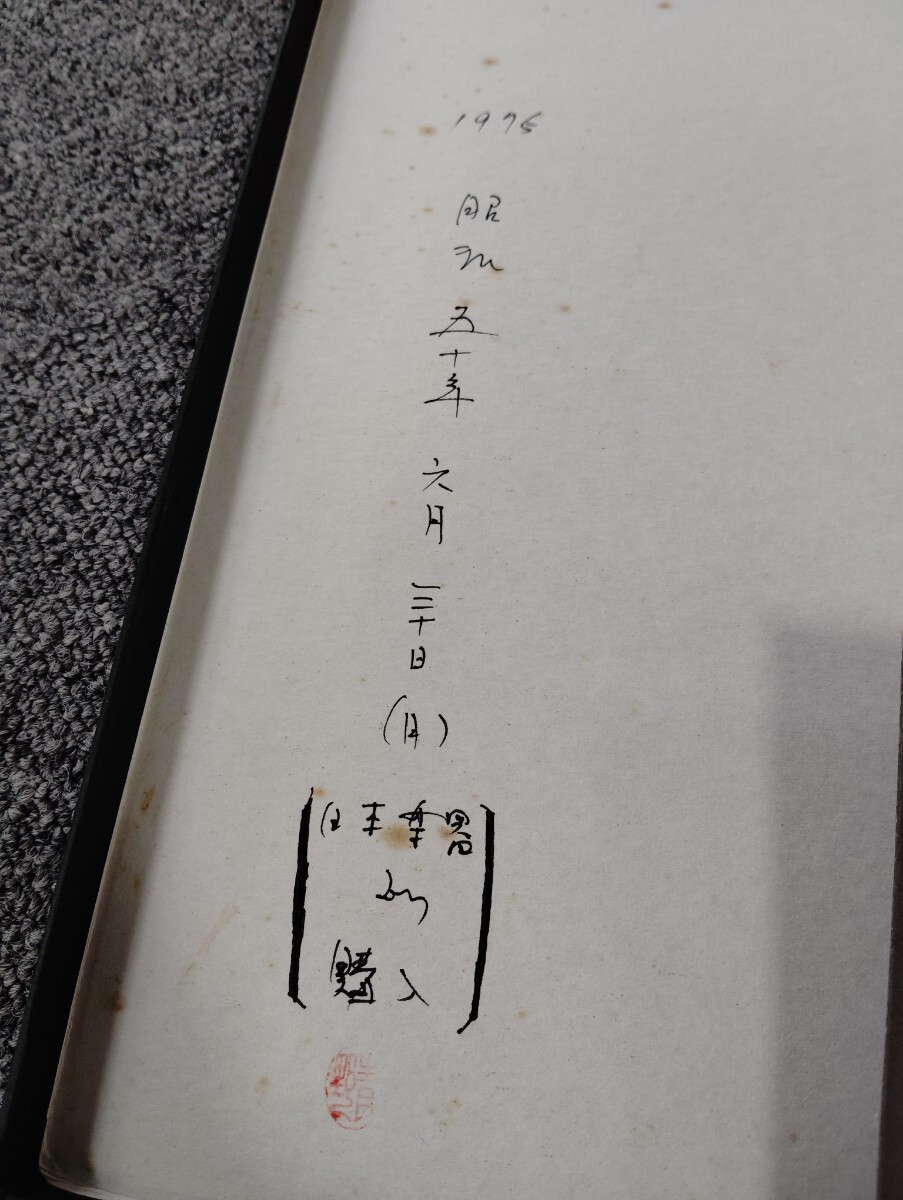 1975
昭和五十年 六月 三十日 (月)
日本楽器
にて
購入